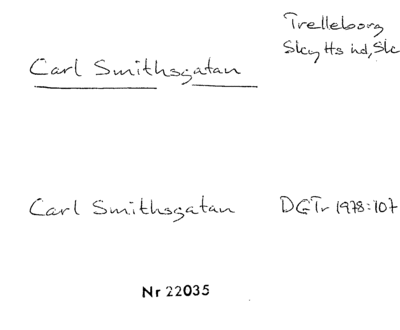 Trelleborg
Skytts hd, Sk
Carl Smithsgatan
Carl Smithsgatan DGTr 1978:107
Nr 22035